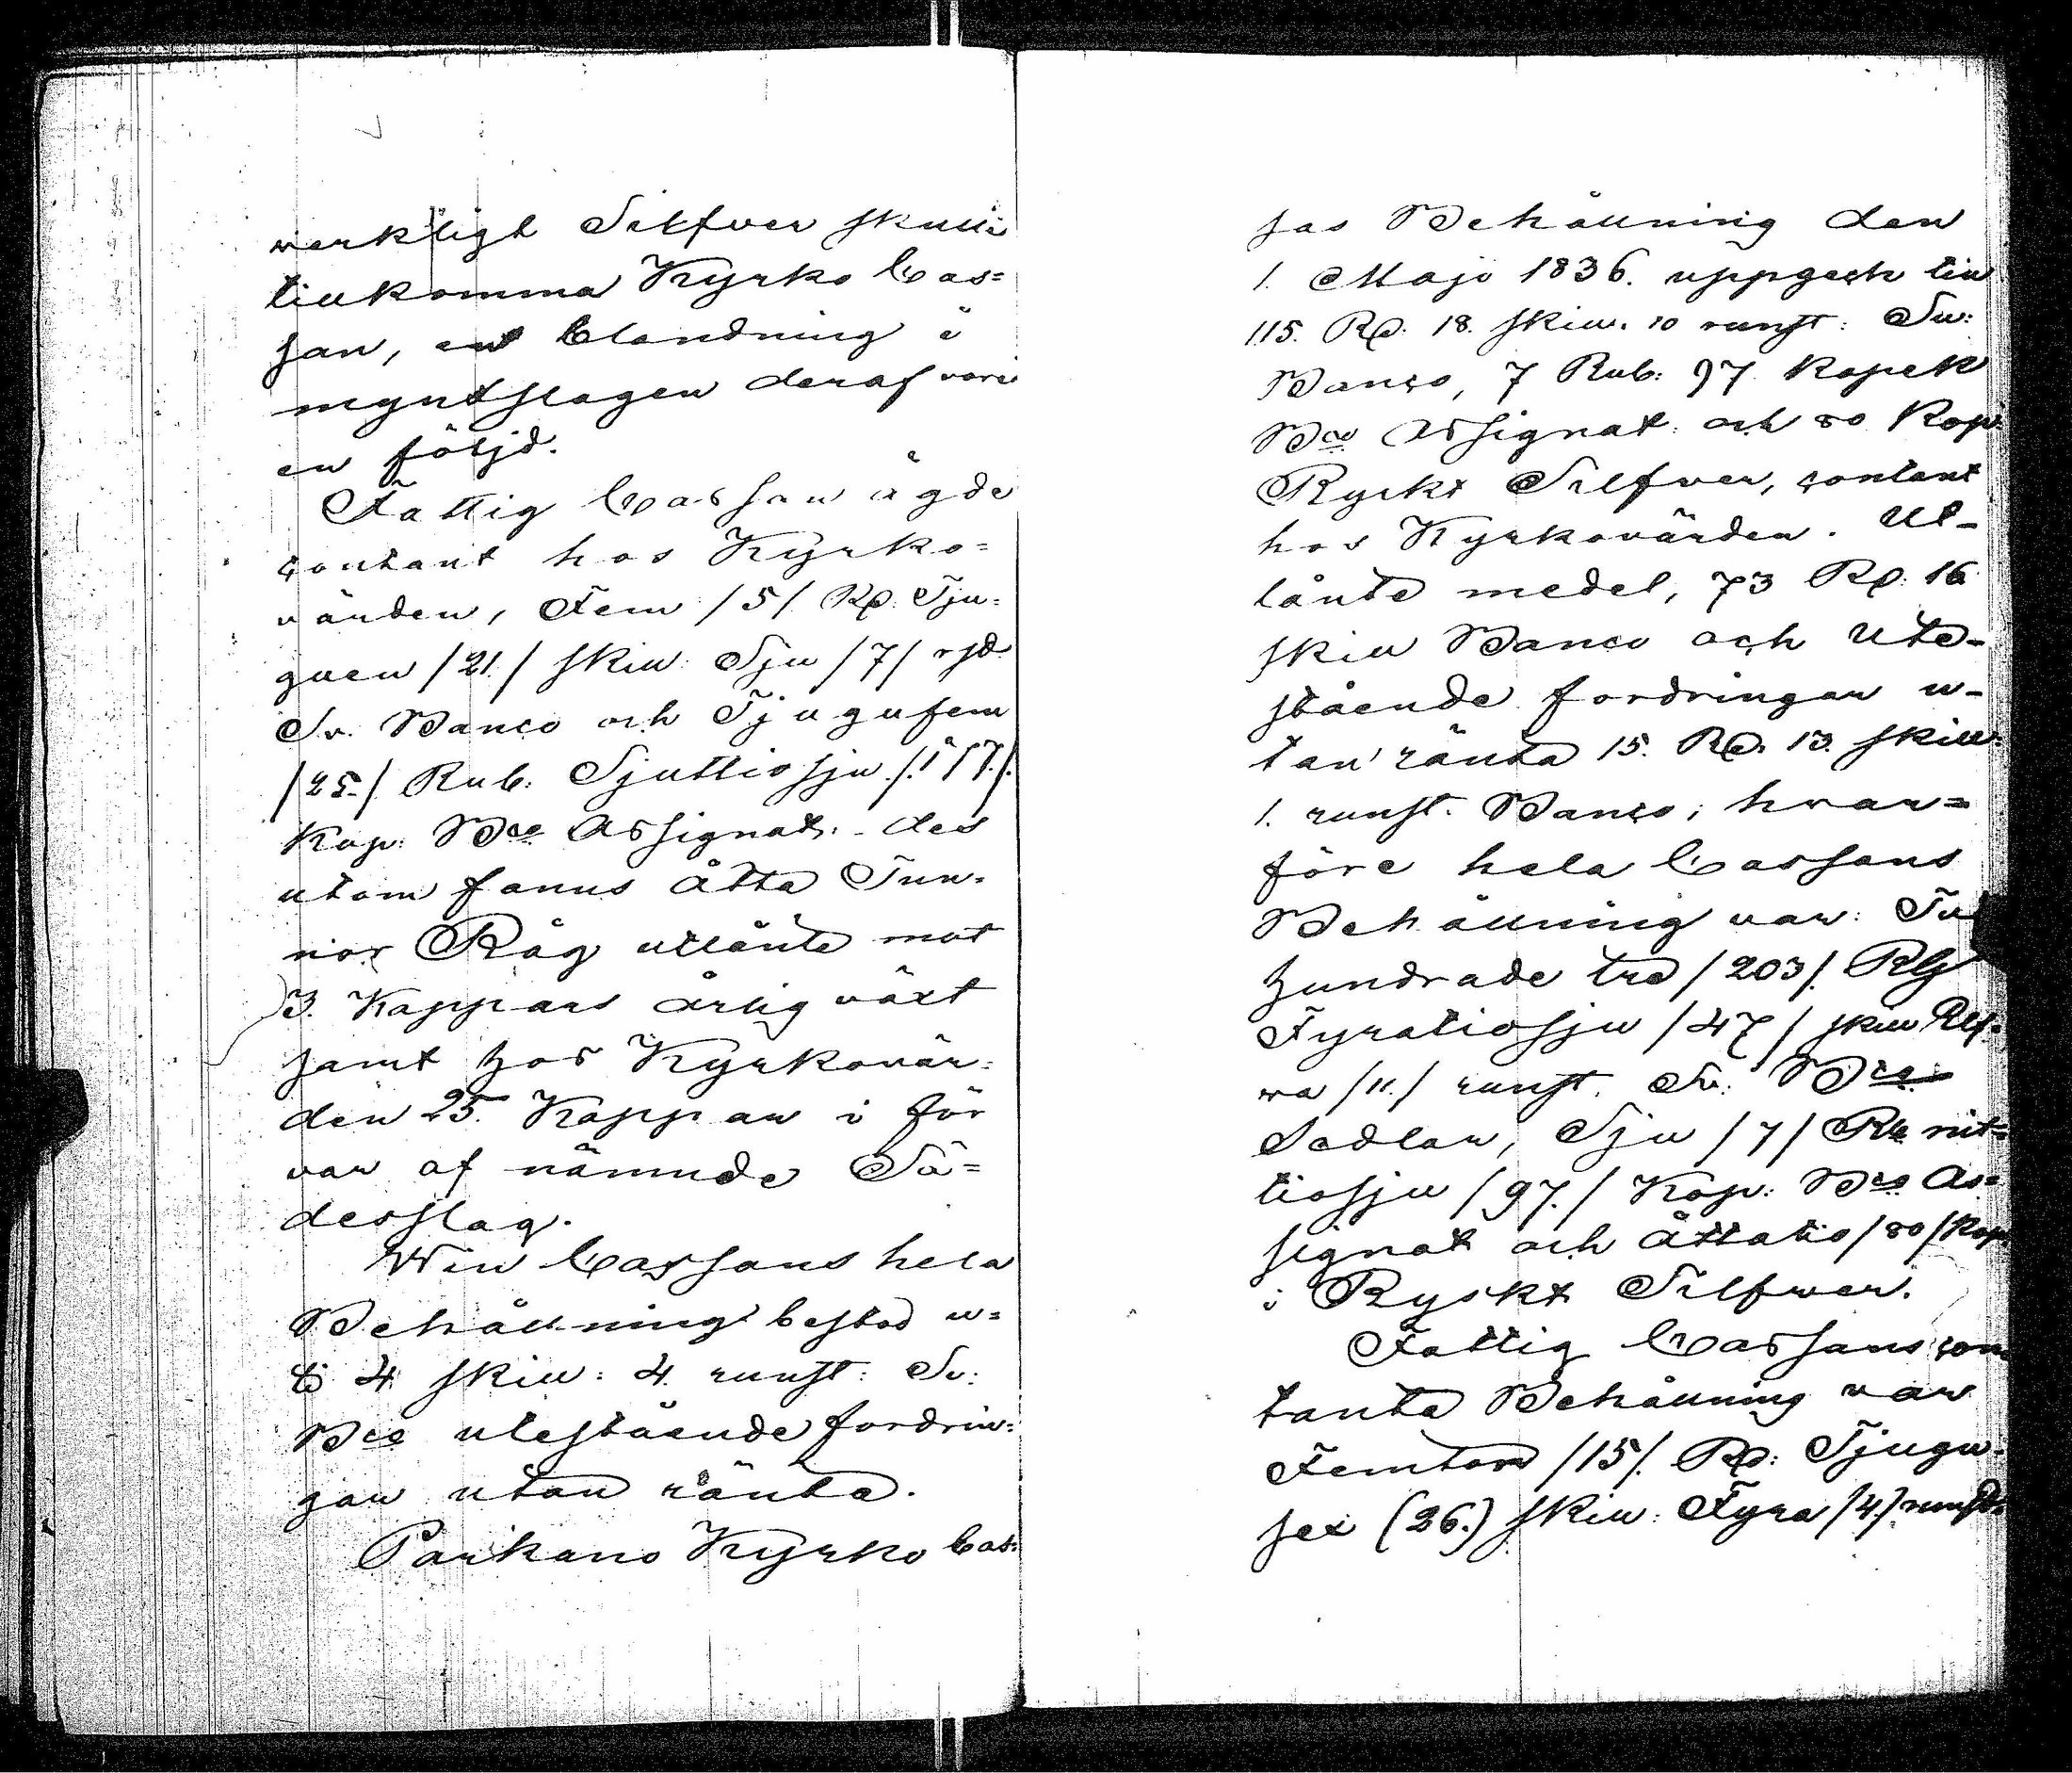 verkligt Silfver skulle
tillkomma Kyrko Cas=
san, en blandning i
myntslagen deraf vore
en följd.
Fattig Cassan ägde
contant hos Kyrko=
värden, Fem /5/ Rd: Tju=
guen /21./ skill: Sju /7/ rst.
Sv. Banco och Tjugufem
/25./ Rub: Sjuttiosju /77/.
Kop: Bco Assignat. des
utom fanns åtta Tun-
nor Råg utlånte mot
3. Kappars årlig växt
samt hos Kyrkovär=
den 25. Kappar i för
var af nämnde Sä=
desslag.
Win Cassans hela
Behållning bestod u=
ti 4 skill: 4. runst: Sv:
Bco utestående fordrin=
gar utan ränta.
Parkano Kyrko Cas=
sas Behållning den
1. Maji 1836. uppgeck till
115. Rd: 18. skill. 10 runst: Sv:
Banco, 7 Rub: 97 Kopek
Bco Assignat: och 80 Kop:
Ryskt Silfver, contant
hos Kyrkovärden. Ut-
lånte medel, 73 Rd: 16
skill Banco och Ute-
stående fordringar u-
tan ränta 15. Rd. 13. skill:
1. runst. Banco; hvar=
före hela Cassans
Behållning var: Tu
hundrade tre /203/. Rd
Fyratiosju /47/ skill Elf-
va /11./ runst. Sv: Bco
Sedlar, Sju /7/ Rb nit=
tiosju /97./ Kop: Bco As=
signat och Åttatio /80/ Kop.
i Ryskt Silfver.
Fattig Cassans con
tanta Behållning var
Femton /15/. Rd: Tjugu-
sex (26.) skill: Fyra /4./ runst.